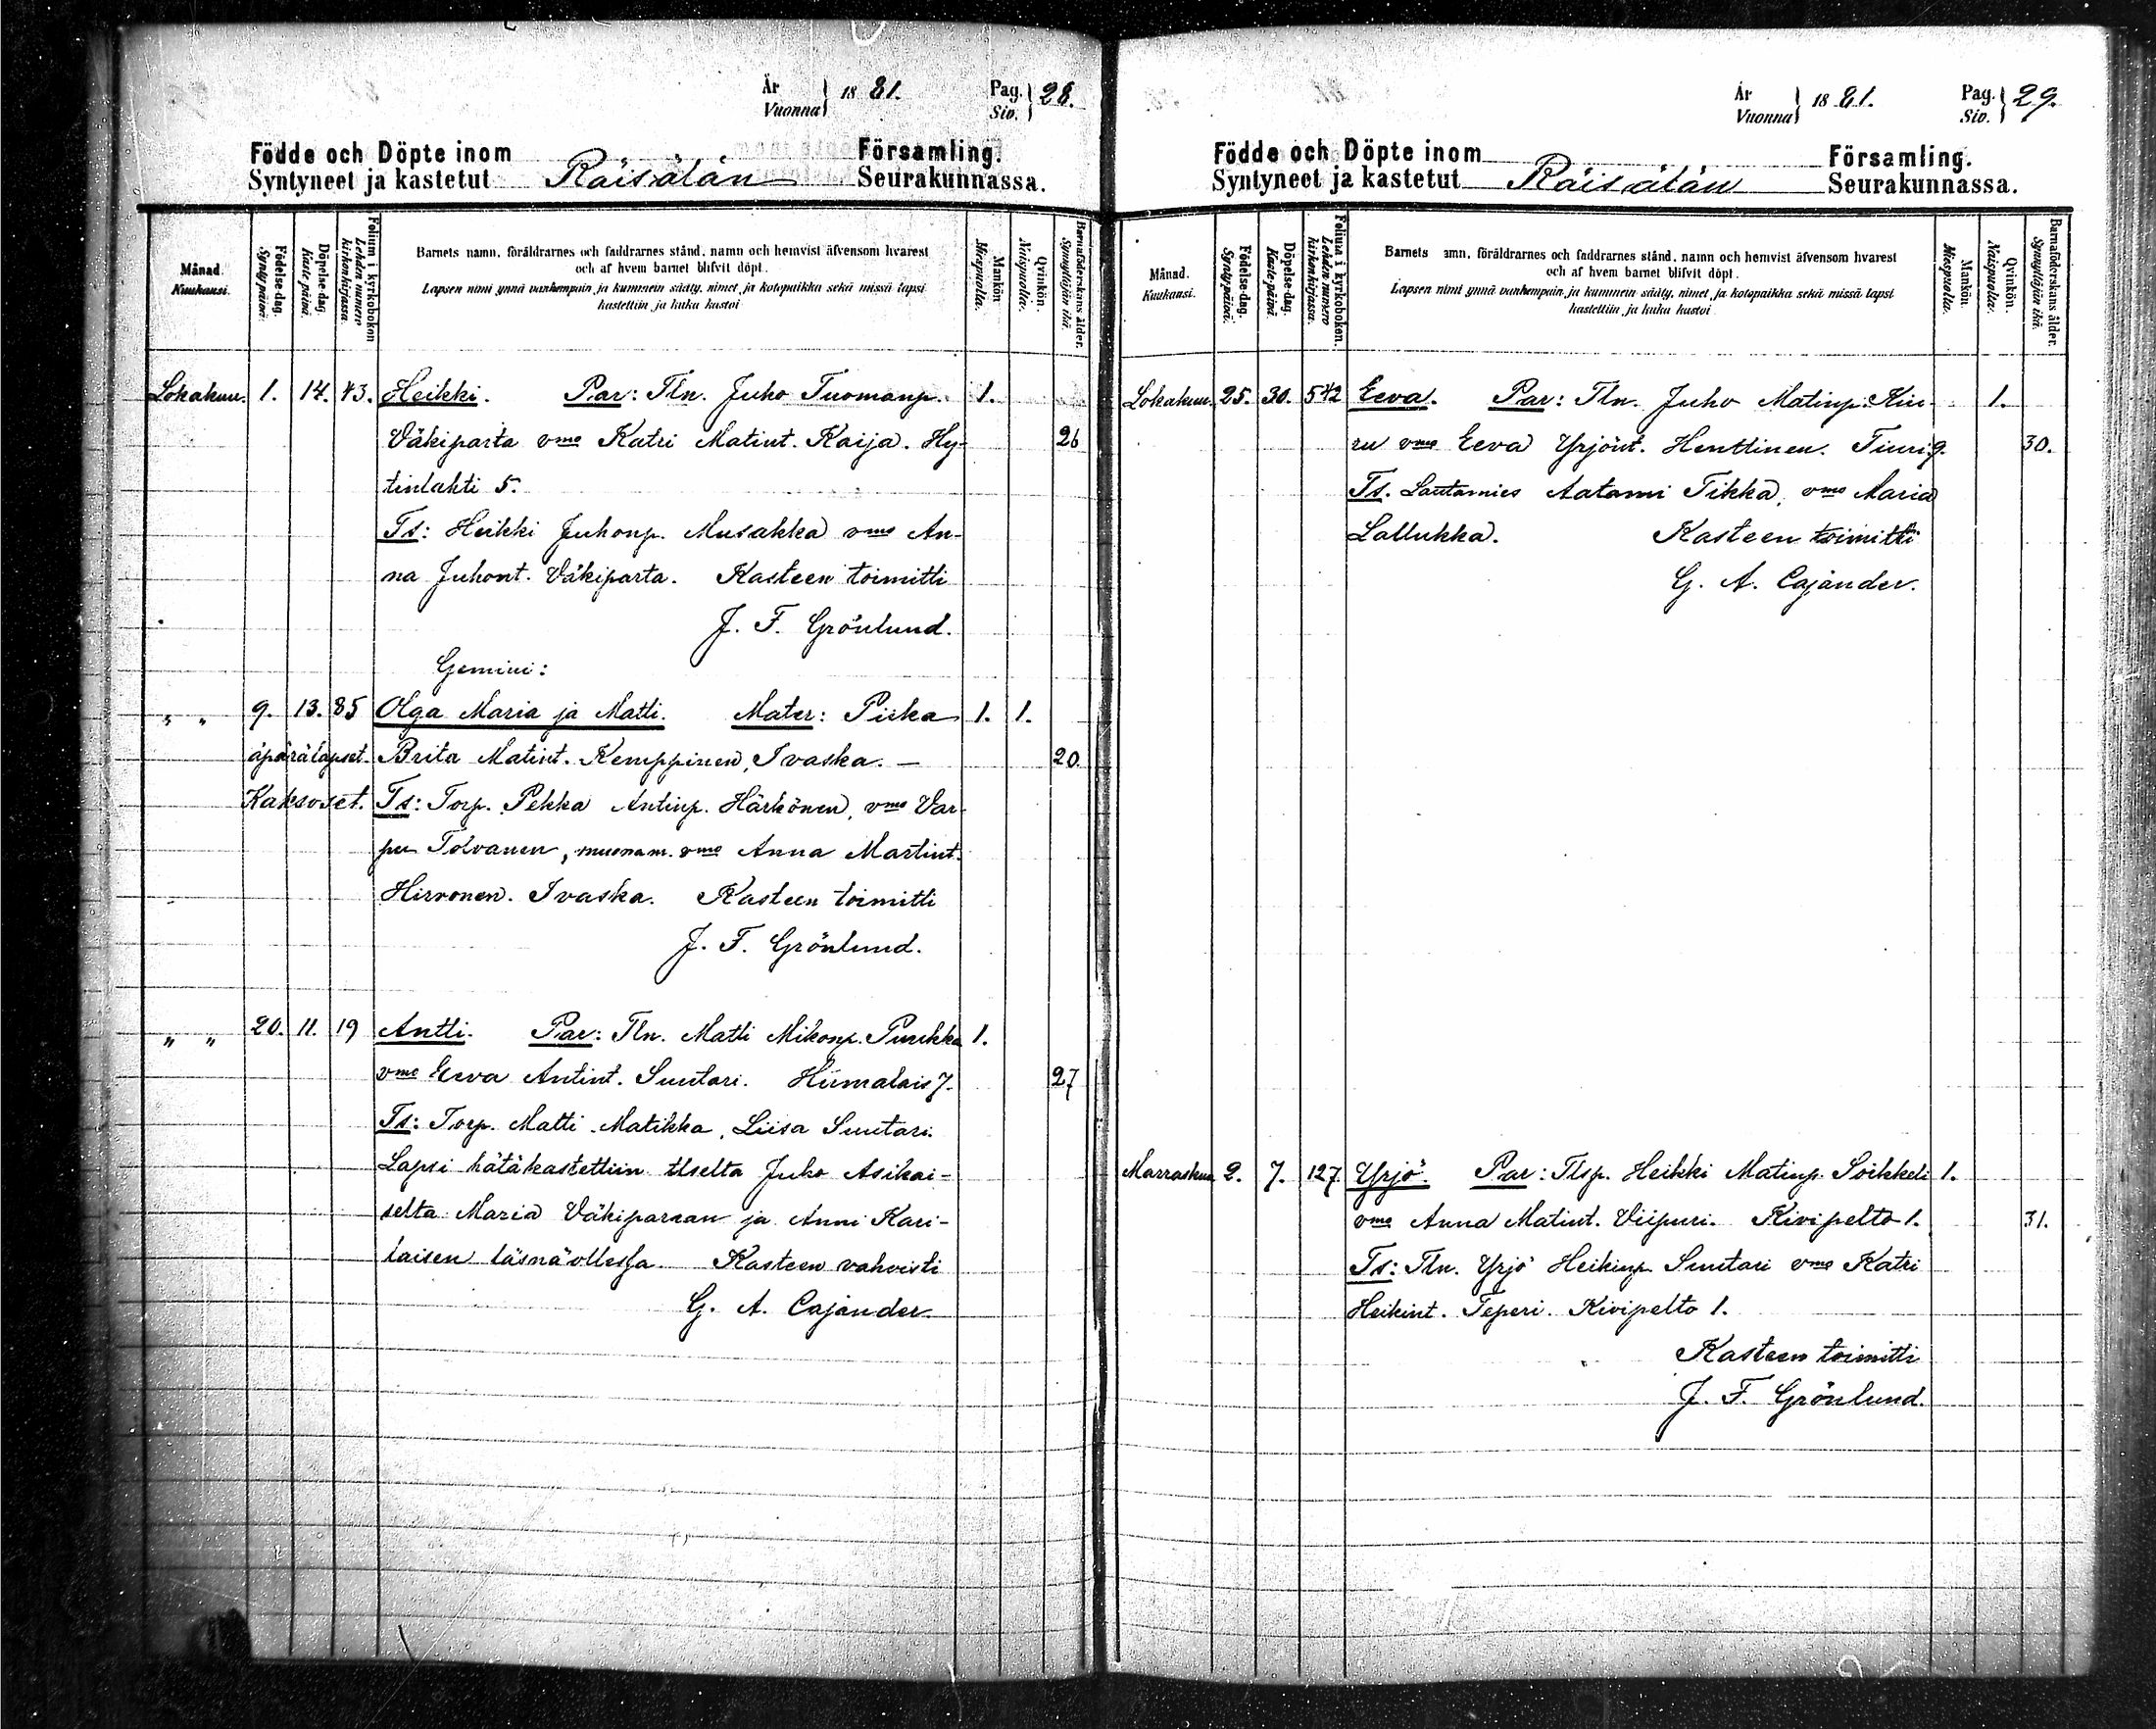 År
Vuonna } 18 81. Pag.
Siv. } 28.
Födde och Döpte inom Församling.
Syntyneet ja kastetut Räisälän Seurakunnassa.
Månad.
Kuukausi.
Födelse-dag.
Syntypäivä.
Döpelse-dag.
Kaste-päivä.
Folium i kyrkoboken
Lehden numero kirkonkirjassa.
Barnets namn, föräldrarnes och faddrarnes stånd, namn och hemvist äfvensom hvarest
och af hvem barnet blifvit döpt.
Lapsen nimi ynnä vanhempain ja kummein sääty, nimet ja kotopaikka sekä missä lapsi
kastettiin ja kuka kastoi
Mankön
Miespuolia.
Qvinkön.
Naispuolia.
Barnaföderskans ålder.
Synnyttäjän ikä.
Lokakuu. 1. 14. 43. Heikki. Par: Tln. Juho Tuomanp. 1.
Väkiparta vmo Katri Matint. Kaija. Hy- 26
tinlahti 5.
Ts: Heikki Juhonp. Musakka vmo An-
na Juhont. Väkiparta. Kasteen toimitti
J. F. Grönlund.
Gemini:
" " 9. 13. 85 Olga Maria ja Matti. Mater: Piika 1. 1.
äpärälapset. Brita Matint. Kemppinen, Ivaska. — 20.
Kaksoset. Ts: Torp. Pekka Antinp. Härkönen, vmo Var-
pu Tolvanen, muonam. vmo Anna Martint.
Hirvonen. Ivaska. Kasteen toimitti
J. F. Grönlund.
" " 20. 11. 19 Antti. Par: Tln. Matti Mikonp. Puukka 1.
vmo Eeva Antint. Suutari. Hiimalais 7. 27
Ts: Torp. Matti Matikka, Liisa Suutari.
Lapsi hätäkastettiin tlselta Juho Asikai-
selta Maria Väkiparran ja Anni Kari-
laisen läsnäollessa. Kasteen vahvisti
G. A. Cajander.
År
Vuonna } 18 81. Pag.
Siv. } 29.
Födde och Döpte inom Församling.
Syntyneet ja kastetut Räisälän Seurakunnassa.
Månad.
Kuukausi.
Födelse-dag.
Syntypäivä.
Döpelse-dag.
Kaste-päivä.
Folium i kyrkoboken.
Lehden numero kirkonkirjassa.
Barnets amn, föräldrarnes och faddrarnes stånd, namn och hemvist äfvensom hvarest
och af hvem barnet blifvit döpt.
Lapsen nimi ynnä vanhempain ja kummein sääty, nimet ja kotopaikka sekä missä lapsi
kastettiin ja kuka kastoi
Mankön
Miespuolia.
Qvinkön.
Naispuolia.
Barnaföderskans ålder.
Synnyttäjän ikä.
Lokakuu. 25. 30. 542 Eeva. Par: Tln. Juho Matinp. Kiu- 1.
ru vmo Eeva Yrjönt. Henttinen. Tiuri 9. 30.
Ts. Lautamies Aatami Tikka, vmo Maria
Lallukka. Kasteen toimitti
G. A. Cajander.
Marraskuu 2. 7. 127. Yrjö. Par: Tlsp. Heikki Matinp. Soikkeli 1.
vmo Anna Matint. Viipuri. Kivipelto 1. 31.
Ts: Tln. Yrjö Heikinp. Suutari vmo Katri
Heikint. Teperi. Kivipelto 1.
Kasteen toimitti
J. F. Grönlund.